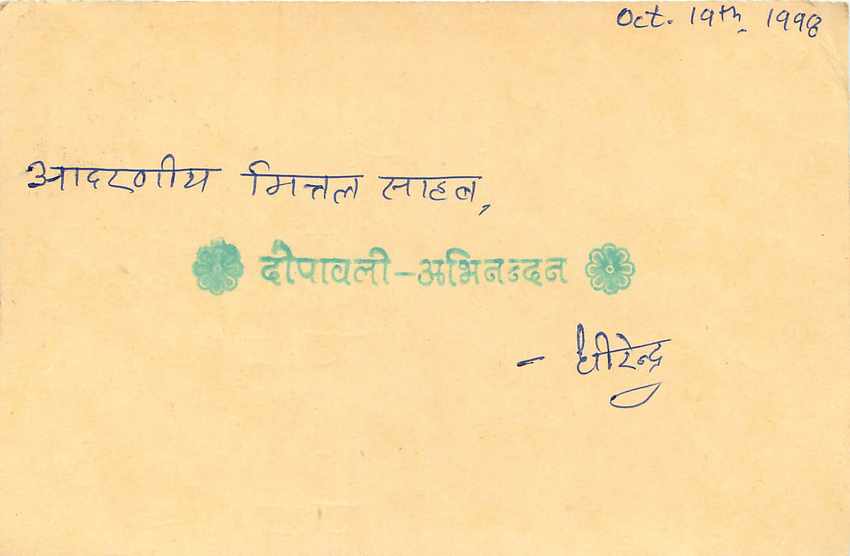 Oct. 19th, 1998
आदरणीय मित्तल साहब,
दीपावली - अभिनन्दन
- धीरेन्द्र